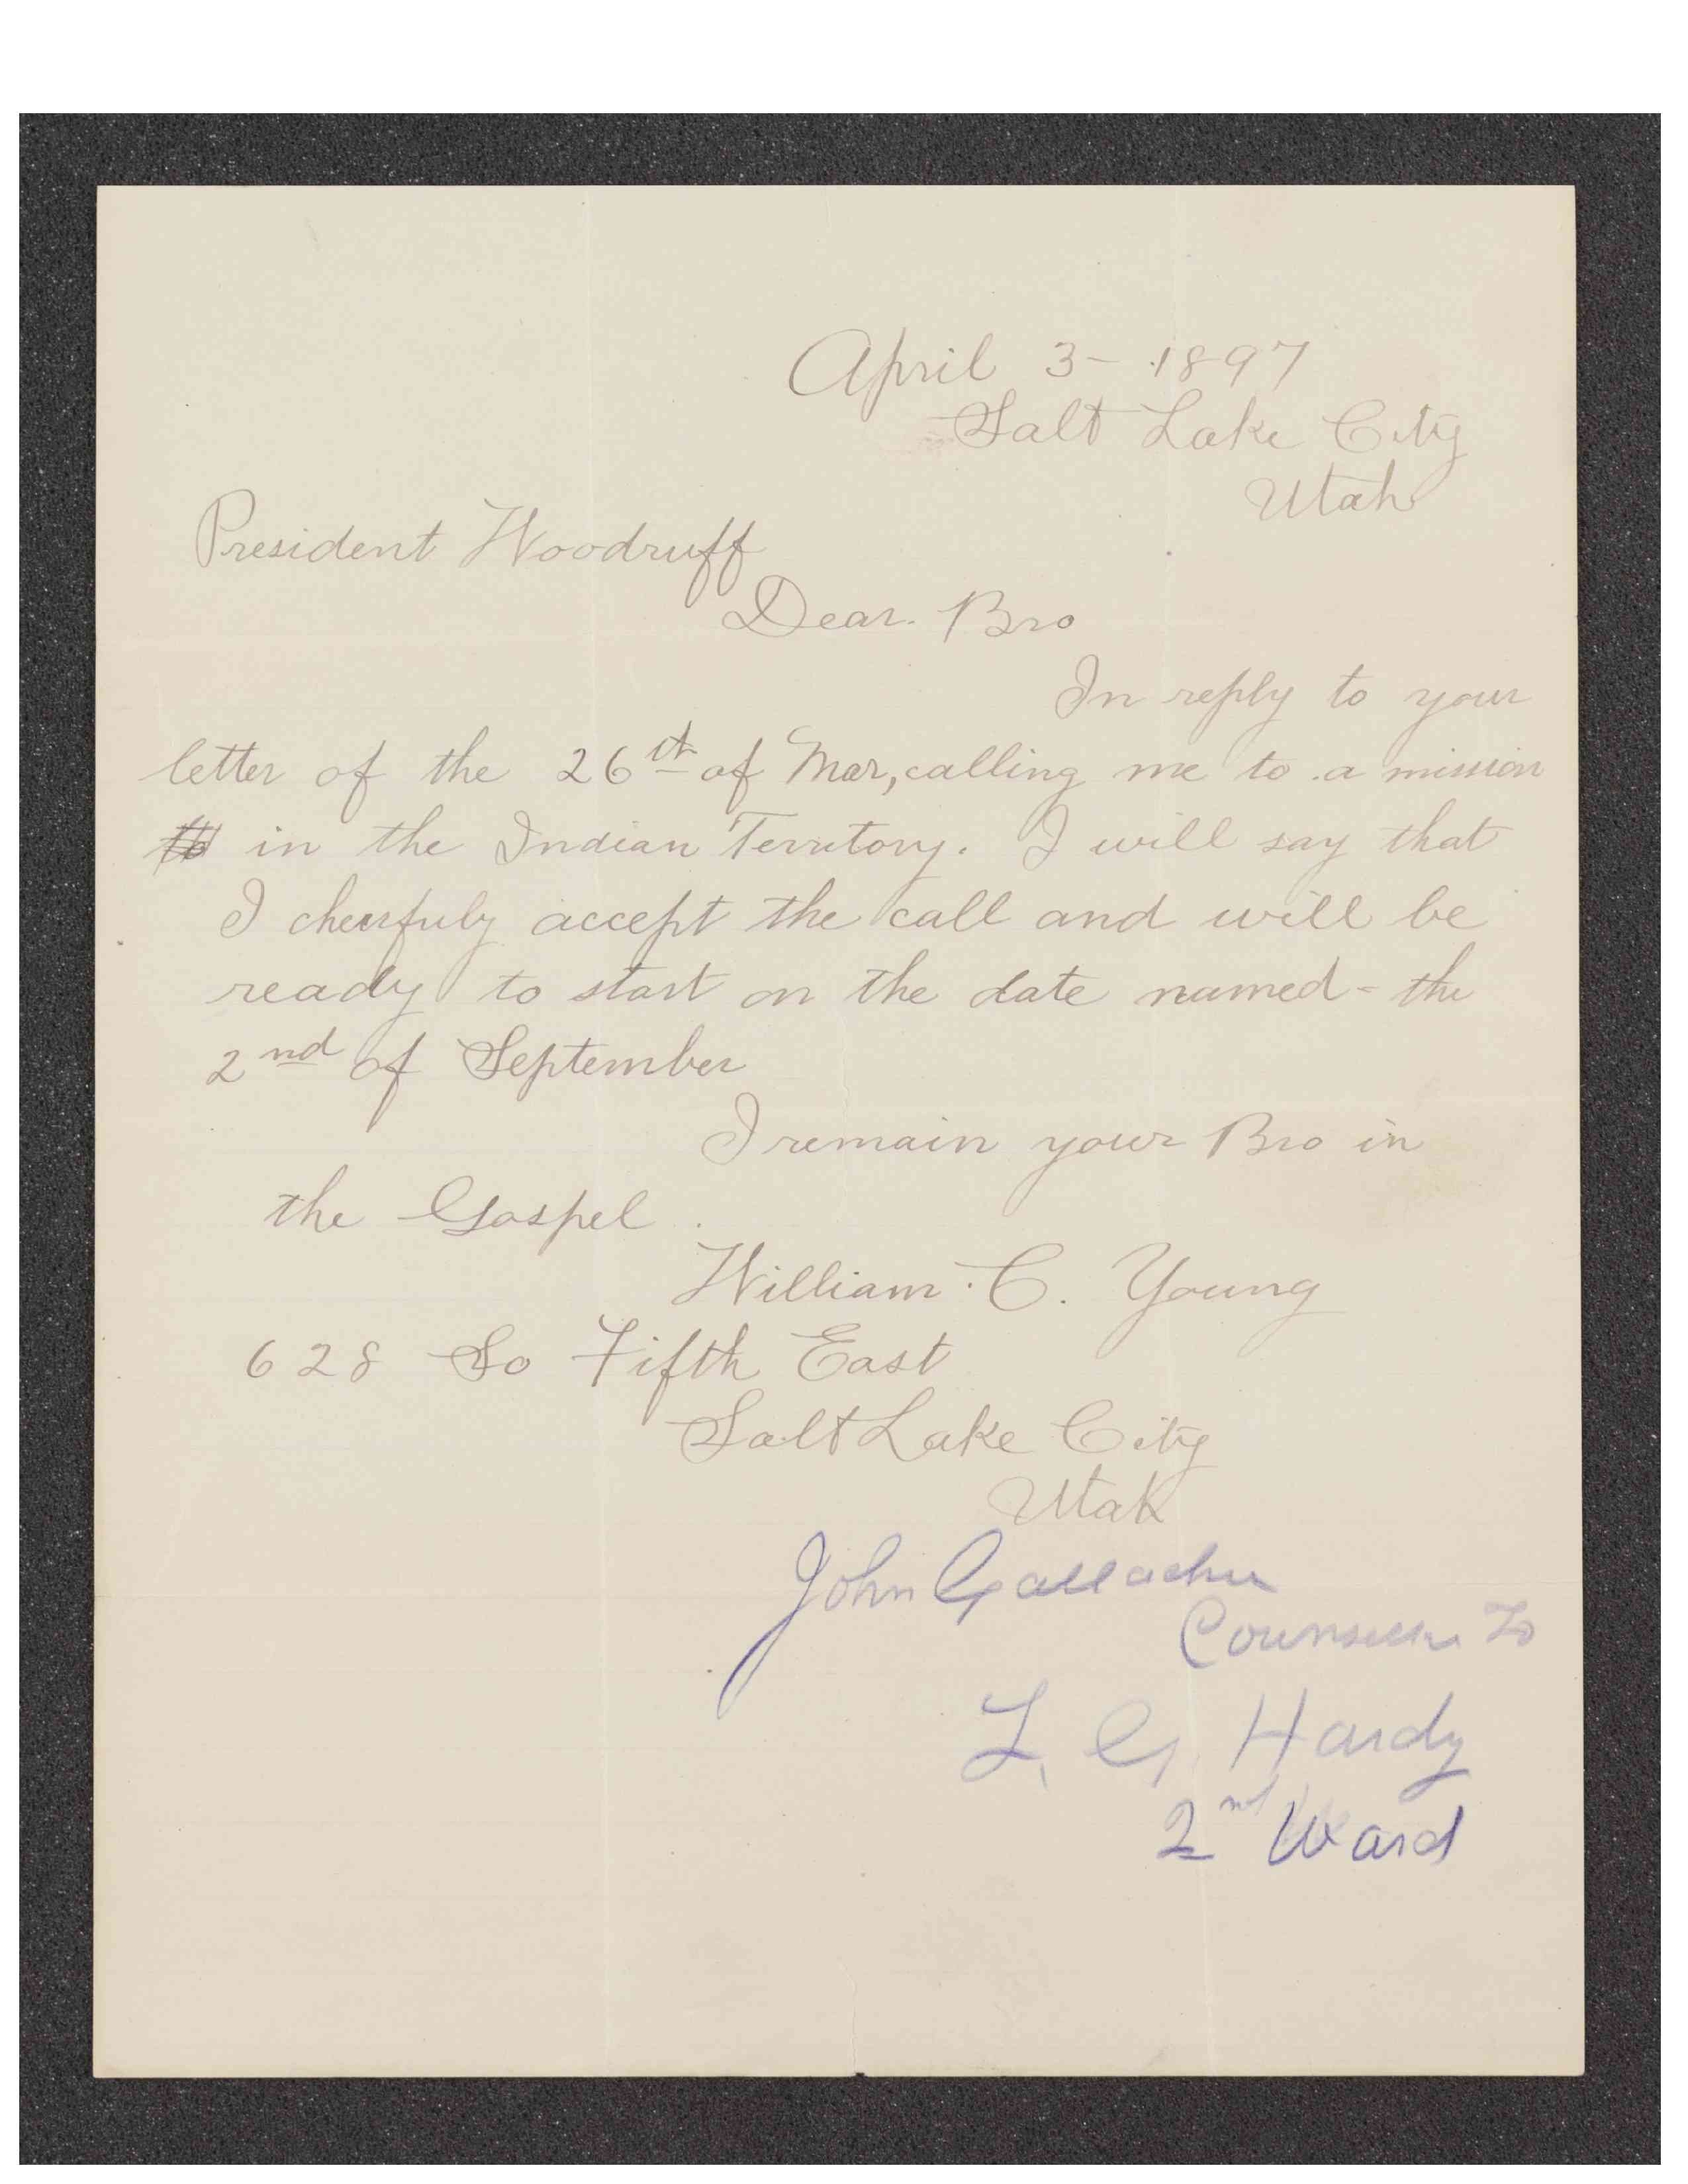 April 3 - 1897
Salt Lake City
Utah
President Woodruff
Dear. Bro
In reply to your
letter of the 26th of Mar, calling me to a mission
to in the Indian Territory. I will say that
I cheerfuly accept the call and will be
ready to start on the date named - the
2nd of September
I remain your Bro in
the Gospel.
William C. Young
628 So Fifth East
Salt Lake City
Utah
John Gallacher
Counselor to
L. G. Hardy
2nd Ward